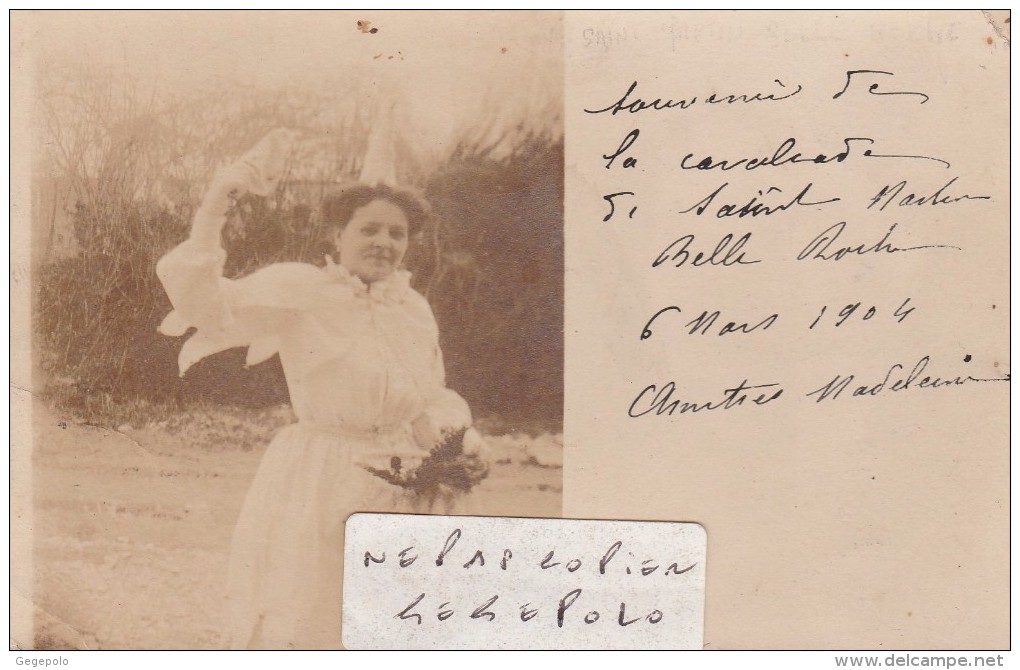 Souvenir de
la cavalcade
de Saint Martin
Belle Roche
6 Mars 1904
Madeleine
NE PAS COPIER
GEGEPOLO
Gegepolo
www.delcampe.net